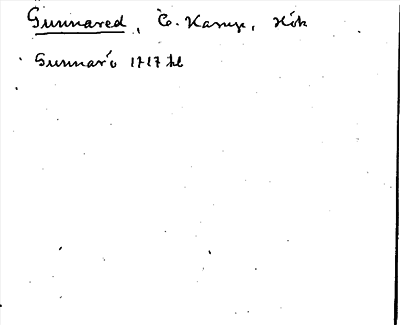 Gunnared, Ö. Karup, Hök
Gunnarö 1717 hl